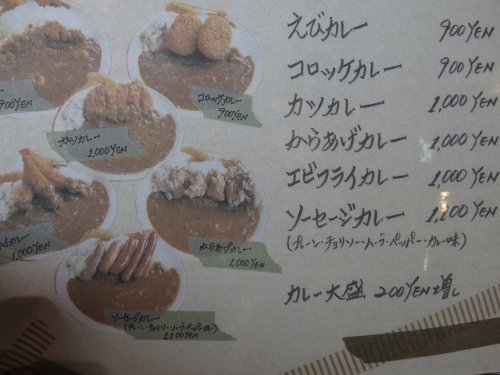 えびカレー 900YEN
コロッケカレー 900YEN
カツカレー 1,000YEN
からあげカレー 1,000YEN
エビフライカレー 1,000YEN
ソーセージカレー 1,100YEN
(プレーン・チョリソー・ハーブ・ペッパー・カレー味)
カレー大盛 200YEN増し
900YEN
コロッケカレー
900YEN
カツカレー
1,000YEN
カレー
1,000YEN
からあげカレー
1,000YEN
ソーセージカレー
(プレーン・チョリソー・ハーブ・ペッパー・カレー)
1,100YEN